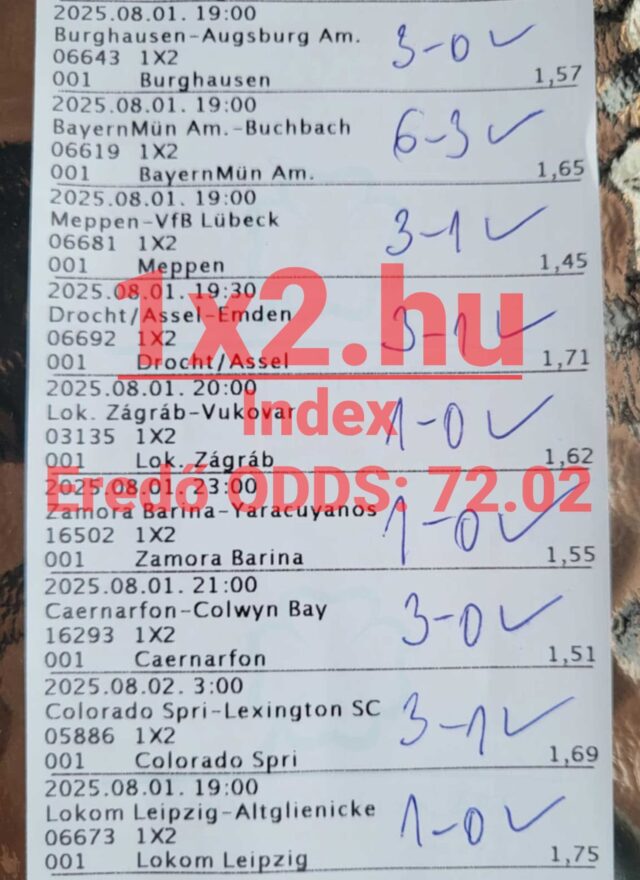 2025.08.01. 19:00
Burghausen-Augsburg Am.
06643 1X2
001 Burghausen 1,57
3-0 ✓
2025.08.01. 19:00
BayernMün Am.-Buchbach
06619 1X2
001 BayernMün Am. 1,65
6-3 ✓
2025.08.01. 19:00
Meppen-VfB Lübeck
06681 1X2
001 Meppen 1,45
3-1 ✓
2025.08.01. 19:30
Drocht/Assel-Emden
06692 1X2
001 Drocht/Assel 1,71
3-1 ✓
1x2.hu
Index
Eredő ODDS: 72.02
2025.08.01. 20:00
Lok. Zágráb-Vukovar
03135 1X2
001 Lok. Zágráb 1,62
1-0 ✓
2025.08.01. 23:00
Zamora Barina-Yaracuyanos
16502 1X2
001 Zamora Barina 1,55
1-0 ✓
2025.08.01. 21:00
Caernarfon-Colwyn Bay
16293 1X2
001 Caernarfon 1,51
3-0 ✓
2025.08.02. 3:00
Colorado Spri-Lexington SC
05886 1X2
001 Colorado Spri 1,69
3-1 ✓
2025.08.01. 19:00
Lokom Leipzig-Altglienicke
06673 1X2
001 Lokom Leipzig 1,75
1-0 ✓